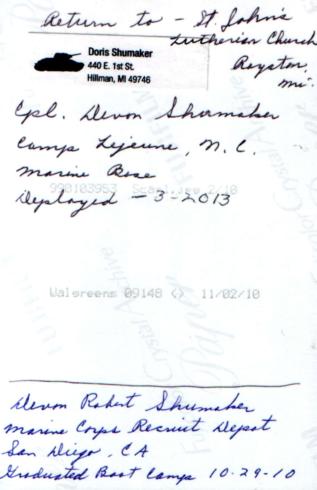 Return to - St. John's
Lutheran Church
Royston,
Mi.
Doris Shumaker
440 E. 1st St.
Hillman, MI 49746
Cpl. Devon Shumaker
Camp Lejeune, N.C.
Marine Base
990103953 2/10
Deployed - 3-2013
Walgreens 09148 <> 11/02/10
Crystal Archive
Devon Robert Shumaker
Marine Corps Recruit Depot
San Diego, CA
Graduated Boot Camp 10-29-10